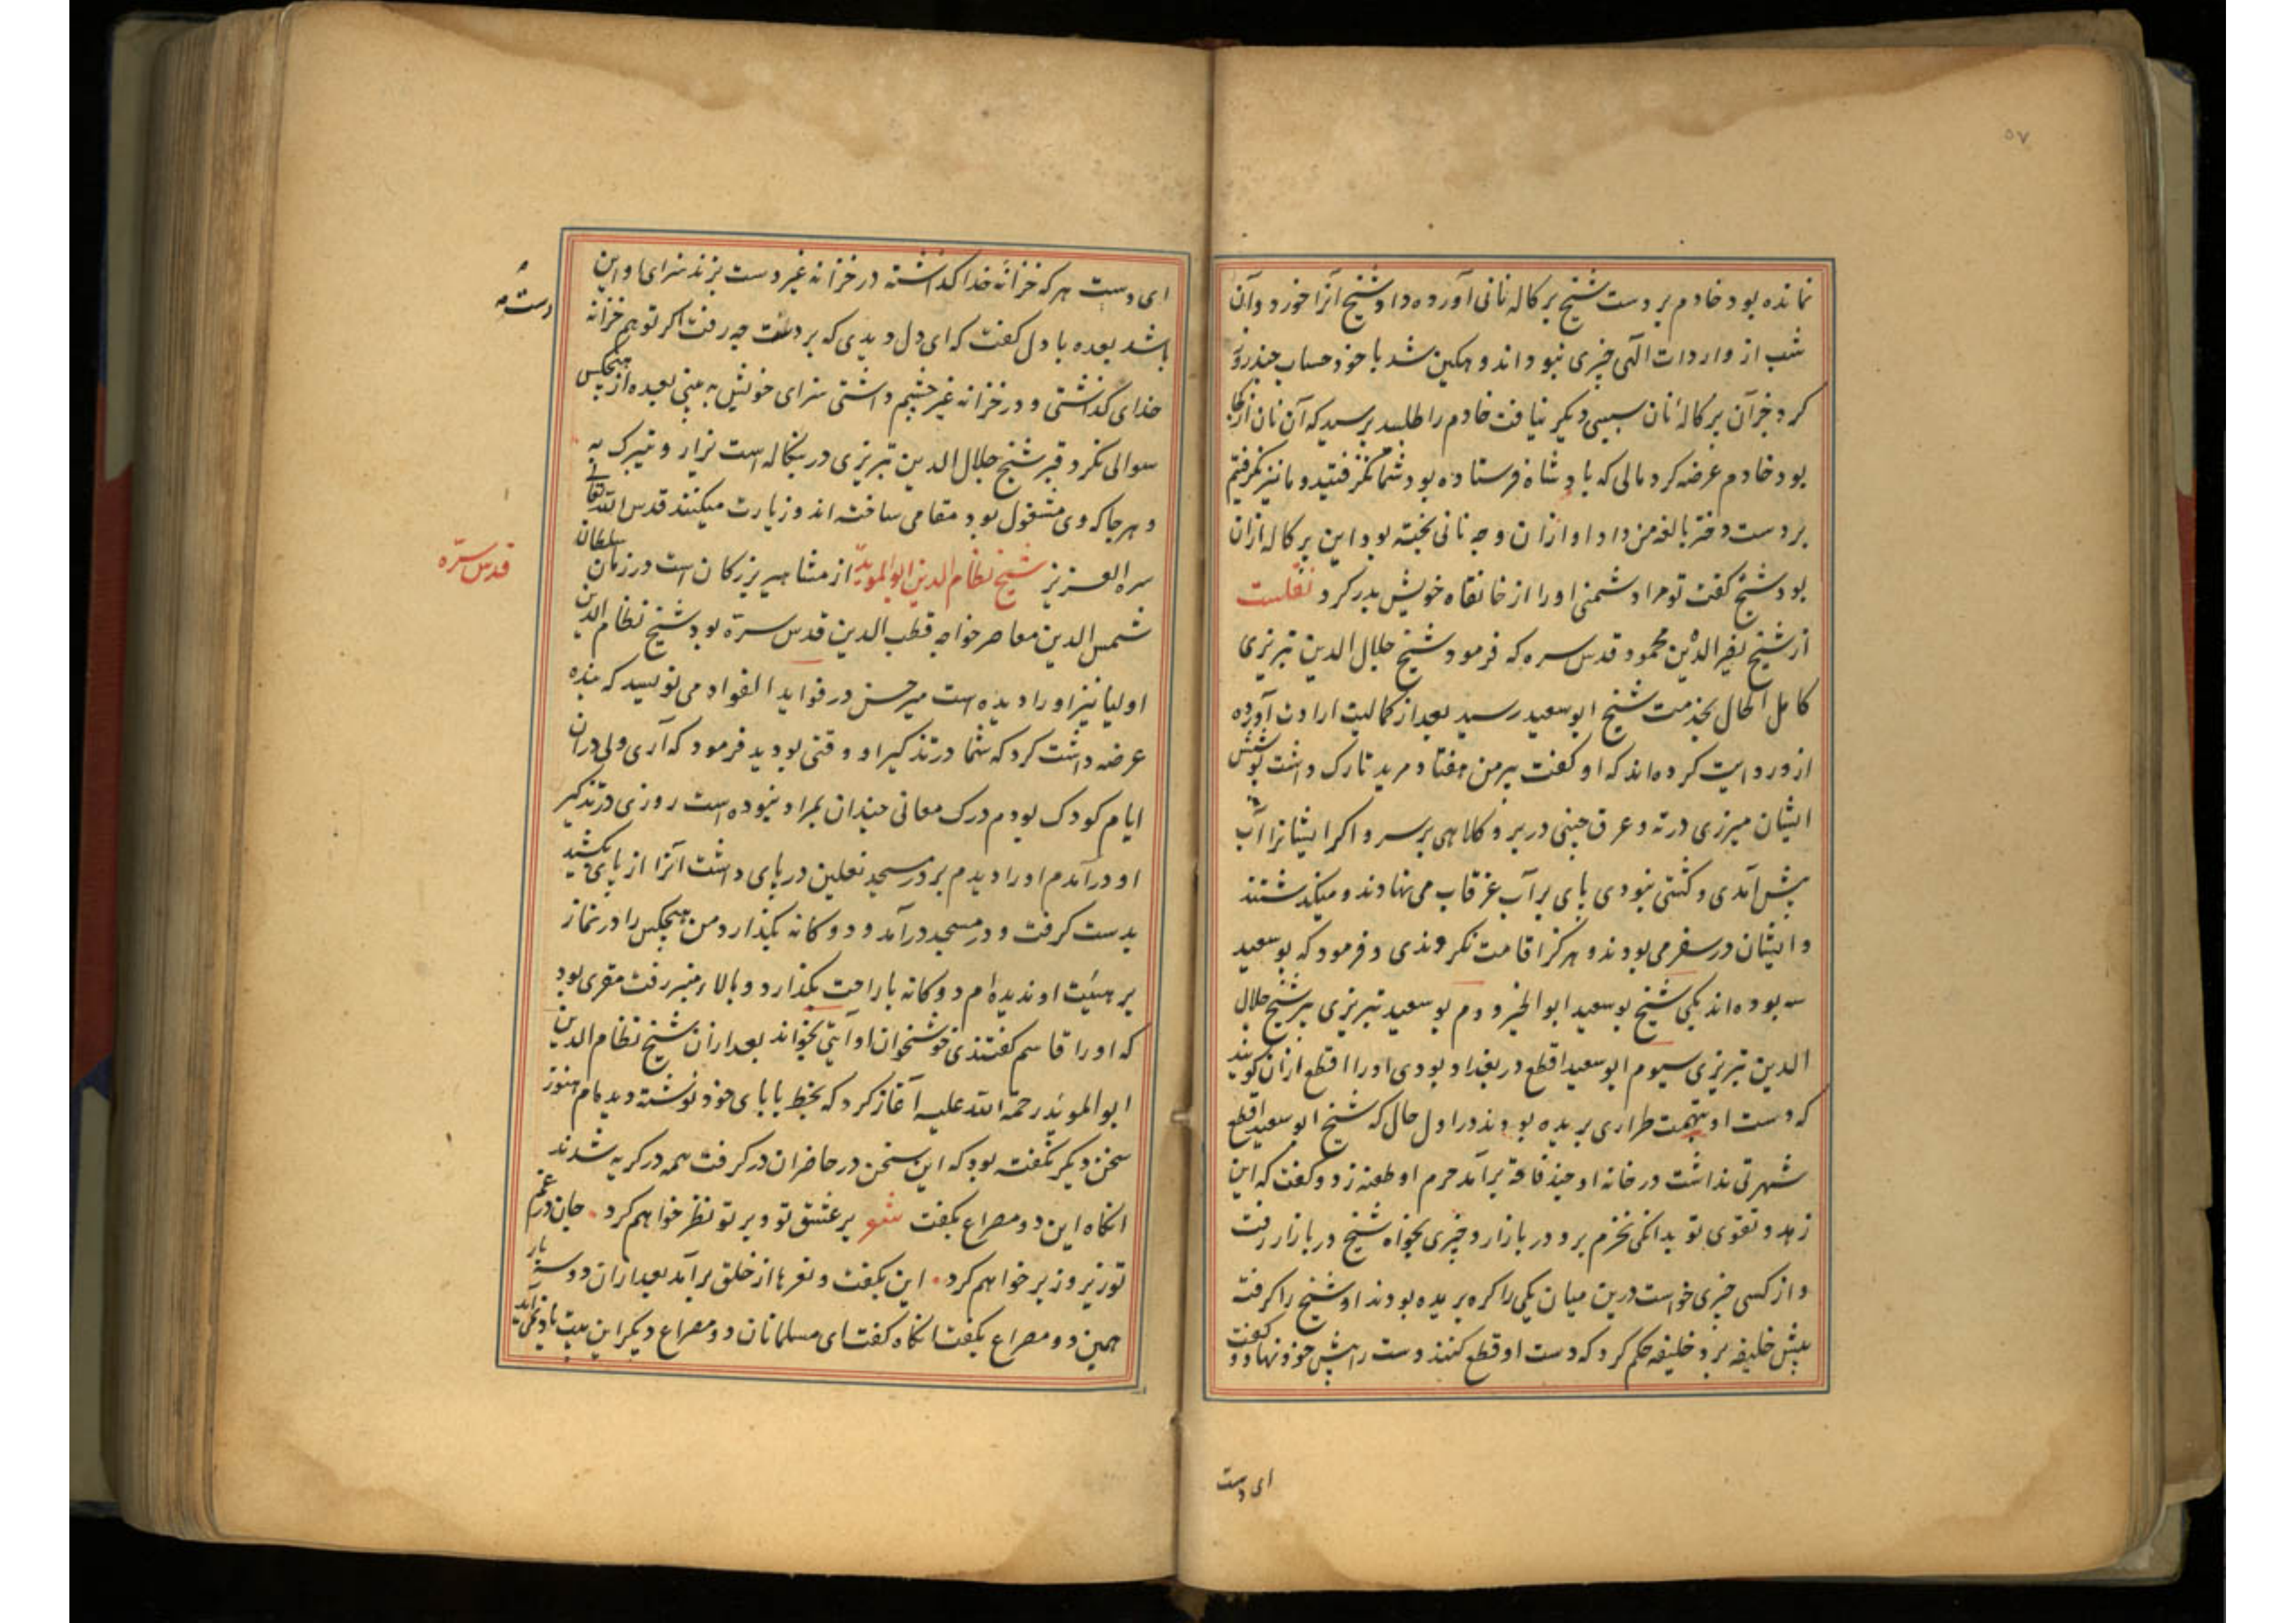 ۵۷
نمانده بود خادم بر دست شیخ پرکاله نانی آورده داد شیخ آنرا خورد و آن
شب از واردات الهی چیزی نبود اندوهکین شد با خود حساب چند روز
کرد جز آن پرکالهٔ نان سببی دیکر نیافت خادم را طلبید پرسید که آن نان از کجا
بود خادم عرضه کرد مالی که بادشاه فرستاده بود شما نکرفتید و ما نیز نکرفتیم
بر دست دختر بالغه من داد او ازان وجه نانی پخته بود این پرکاله ازان
بود شیخ کفت تو مرا دشمنی اورا از خانقاه خویش بدر کرد نقلست
از شیخ نصیر الدین محمود قدس سره که فرمود شیخ جلال الدین تبریزی
کامل الحال بخدمت شیخ ابو سعید رسید بعد از کمالیت ارادت آورده
ازو روایت کرده‌اند که او کفت پیر من هفتاد مرید تارک داشت پوشش
ایشان میرزی درته و عرق چینی در بر و کلاهی بر سر و اکر ایشانرا آب
پیش آمدی و کشتی نبودی پای بر آب غرقاب می نهادند و میکذشتند
و ایشان در سفر می بودند و هرکز اقامت نکردندی و فرمود که بو سعید
سه بوده‌اند یکی شیخ بو سعید ابو الخیر دوم بو سعید تبریزی پیر شیخ جلال
الدین تبریزی سیوم ابو سعید اقطع در بغداد بودی اورا اقطع ازان کویند
که دست او بتهمت طراری بریده بودند در اول حال که شیخ ابو سعید اقطع
شهرتی نداشت در خانه او چند فاقه برآمد حرم او طعنه زد و کفت که این
زهد و تقوی تو بدانکی نخرم برو در بازار و چیزی بخواه شیخ در بازار رفت
و از کسی چیزی خواست درین میان یکی را کره بریده بودند او شیخ را کرفت
پیش خلیفه برد خلیفه حکم کرد که دست او قطع کنند دست را پیش خود نهاد و کفت
ای دست
ای دست هر که خزانهٔ خدا کذاشته در خزانه غیر دست بزند سزای او این
باشد بعده با دل کفت که ای دل دیدی که بر دست چه رفت اکر تو هم خزانه
دست
خدای کذاشتی و در خزانه غیر چشم داشتی سزای خویش به بینی بعده از هیچکس
سوالی نکرد قبر شیخ جلال الدین تبریزی در بنکاله است یزار و یتبرک به
و هر جا که وی مشغول بود مقامی ساخته اند و زیارت میکنند قدس الله تعالی
سره العزیز شیخ نظام الدین ابو الموید از مشاهیر بزرکان است در زمان سلطان
قدس سره
شمس الدین معاصر خواجه قطب الدین قدس سره بود شیخ نظام الدین
اولیا نیز اورا دیده است میر حسن در فواید الفواد می نویسد که بنده
عرضه داشت کرد که شما در تذکیر او وقتی بودید فرمود که آری ولی دران
ایام کودک بودم درک معانی چندان بمراد نبوده است روزی در تذکیر
او درآمدم اورا دیدم بر در مسجد نعلین در پای داشت آنرا از پای بکشید
بدست کرفت و در مسجد درآمد و دوکانه بکذارد من هیچکس را در نماز
بر هیئت او ندیده ام دوکانه با راحت بکذارد و بالاء منبر رفت مقری بود
که اورا قاسم کفتندی خوشخوان او آیتی بخواند بعد ازان شیخ نظام الدین
ابو الموید رحمة الله علیه آغاز کرد که بخط بابای خود نوشته دیده‌ام هنوز
سخن دیکر نکفته بود که این سخن در حاضران درکرفت همه در کریه شدند
انکاه این دو مصراع بکفت شعر بر عشق تو و بر تو نظر خواهم کرد . جان در غم
تو زیر و زبر خواهم کرد . این بکفت و نعرها از خلق برآمد بعد ازان دو سه بار
همین دو مصراع بکفت انکاه کفت ای مسلمانان دو مصراع دیکر این بیت یاد نمی آید